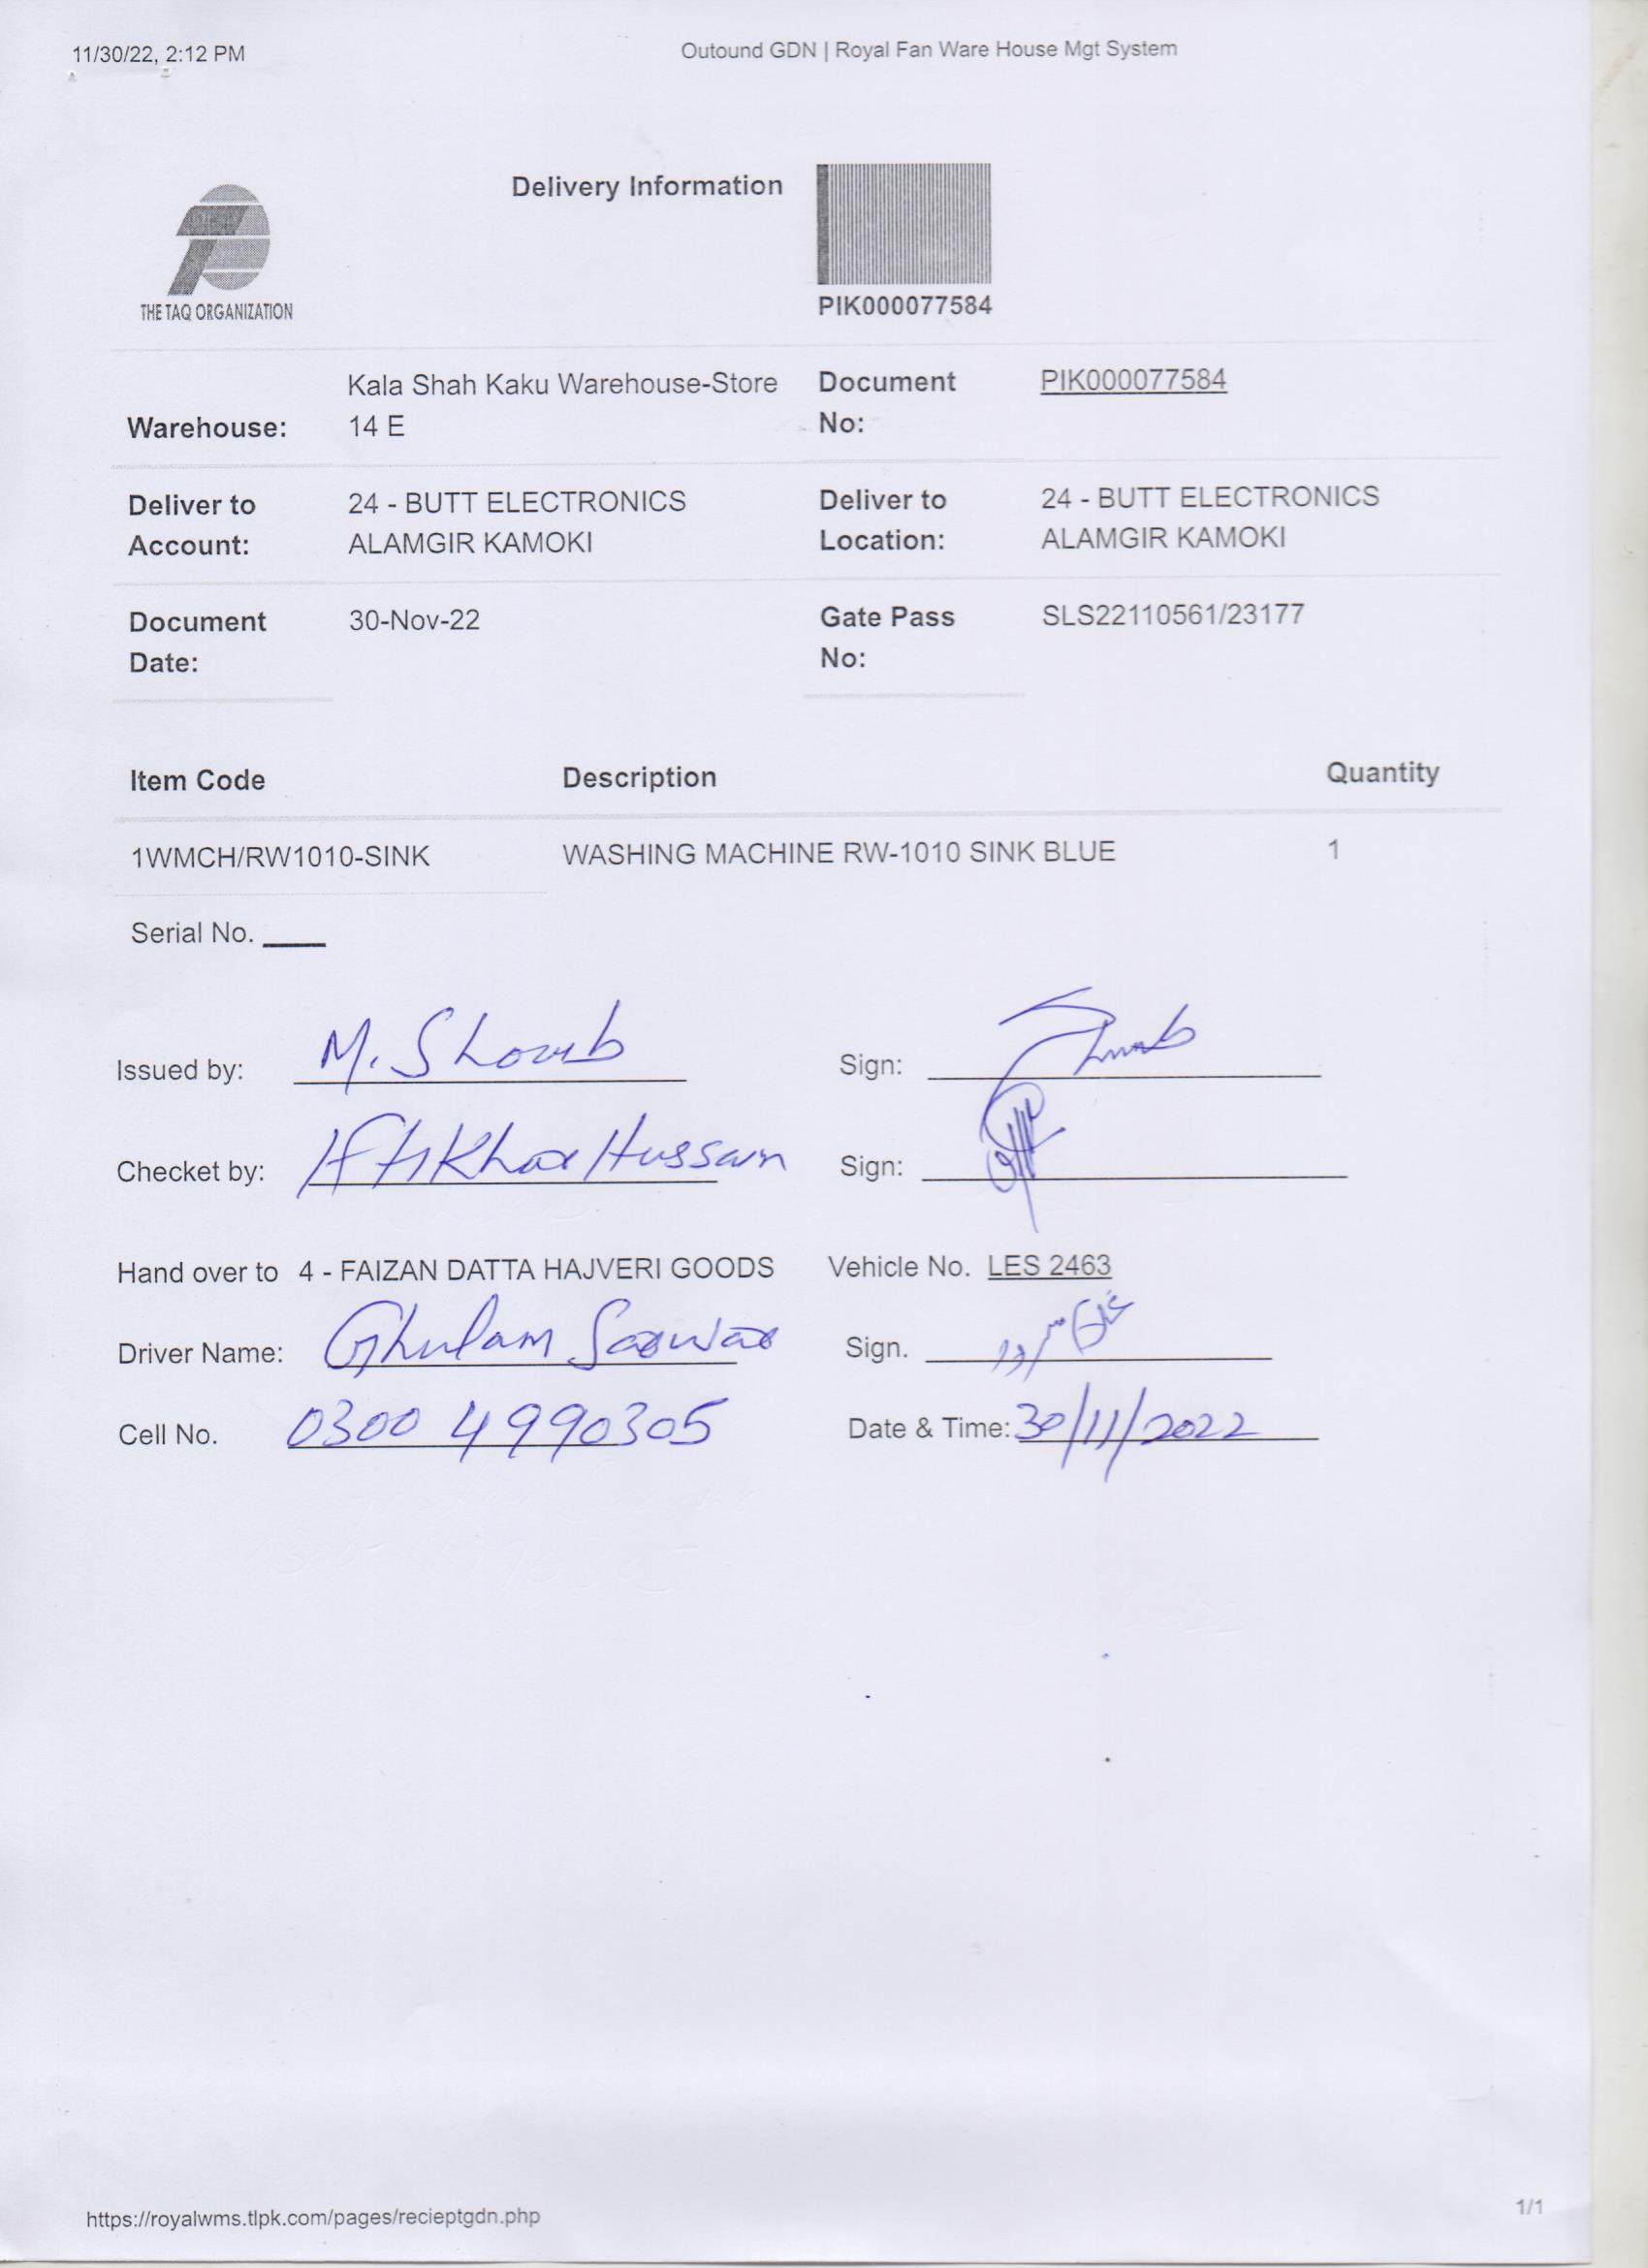 11/30/22, 2:12 PM
Outound GDN | Royal Fan Ware House Mgt System
THE TAQ ORGANIZATION
Delivery Information
PIK000077584
Warehouse: Kala Shah Kaku Warehouse-Store 14 E
Document No: PIK000077584
Deliver to Account: 24 - BUTT ELECTRONICS ALAMGIR KAMOKI
Deliver to Location: 24 - BUTT ELECTRONICS ALAMGIR KAMOKI
Document Date: 30-Nov-22
Gate Pass No: SLS22110561/23177
Item Code Description Quantity
1WMCH/RW1010-SINK WASHING MACHINE RW-1010 SINK BLUE 1
Serial No.
Issued by: M. Shoaib Sign:
Checket by: Iftikhar Hussain Sign:
Hand over to 4 - FAIZAN DATTA HAJVERI GOODS Vehicle No. LES 2463
Driver Name: Ghulam Sarwar Sign. غلام سرور
Cell No. 0300 4990305 Date & Time: 30/11/2022
https://royalwms.tlpk.com/pages/recieptgdn.php
1/1